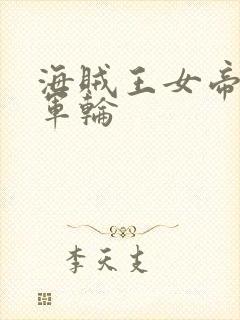 海賊王女帝
軍輪
李天支